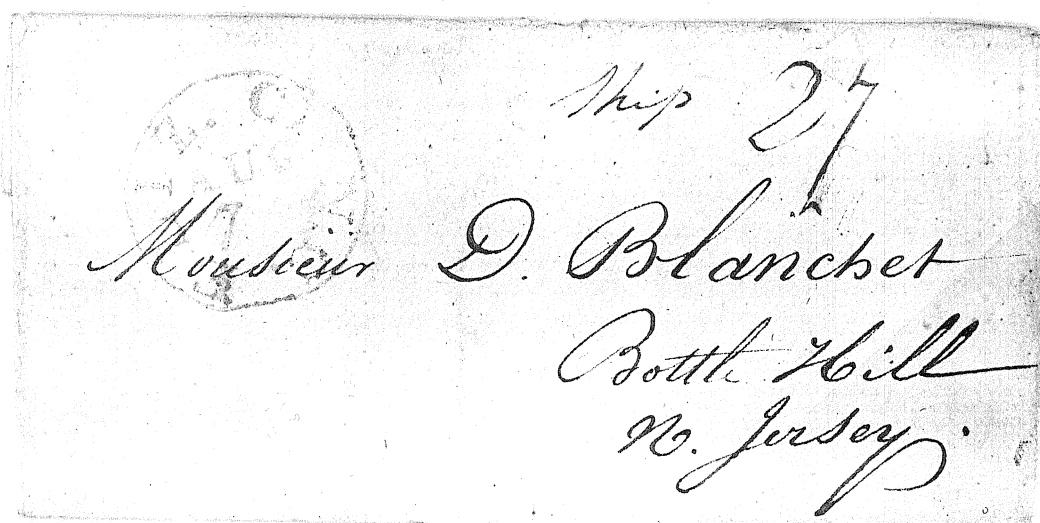 Ship 27
AUG
Monsieur D. Blanchet
Bottle Hill
N. Jersey.